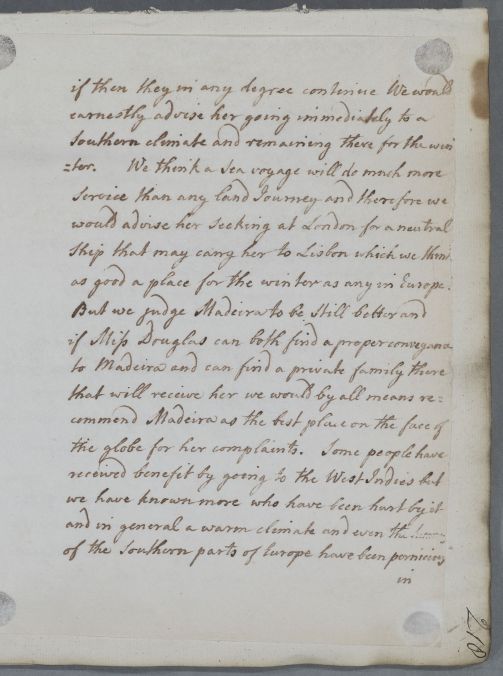 if then they in any degree continue We would
earnestly advise her going immediately to a
Southern climate and remaining there for the win
=ter. We think a Sea voyage will do much more
Service than any land Journey and therefore we
would advise her seeking at London for a neutral
Ship that may carry her to Lisbon which we think
as good a place for the winter as any in Europe.
But we judge Madeira to be still better and
if Miss Douglas can both find a proper conveyance
to Madeira and can find a private family there
that will receive her we would by all means re=
commend Madeira as the best place on the face of
the globe for her complaints. Some people have
received benefit by going to the West Indies but
we have known more who have been hurt by it
and in general a warm climate and even the
of the Southern parts of Europe have been pernicious
in
218